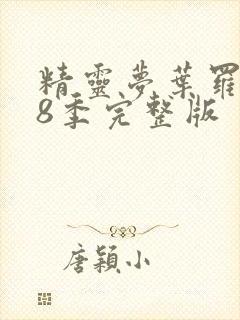 精靈夢葉羅
8季完整版
唐穎小